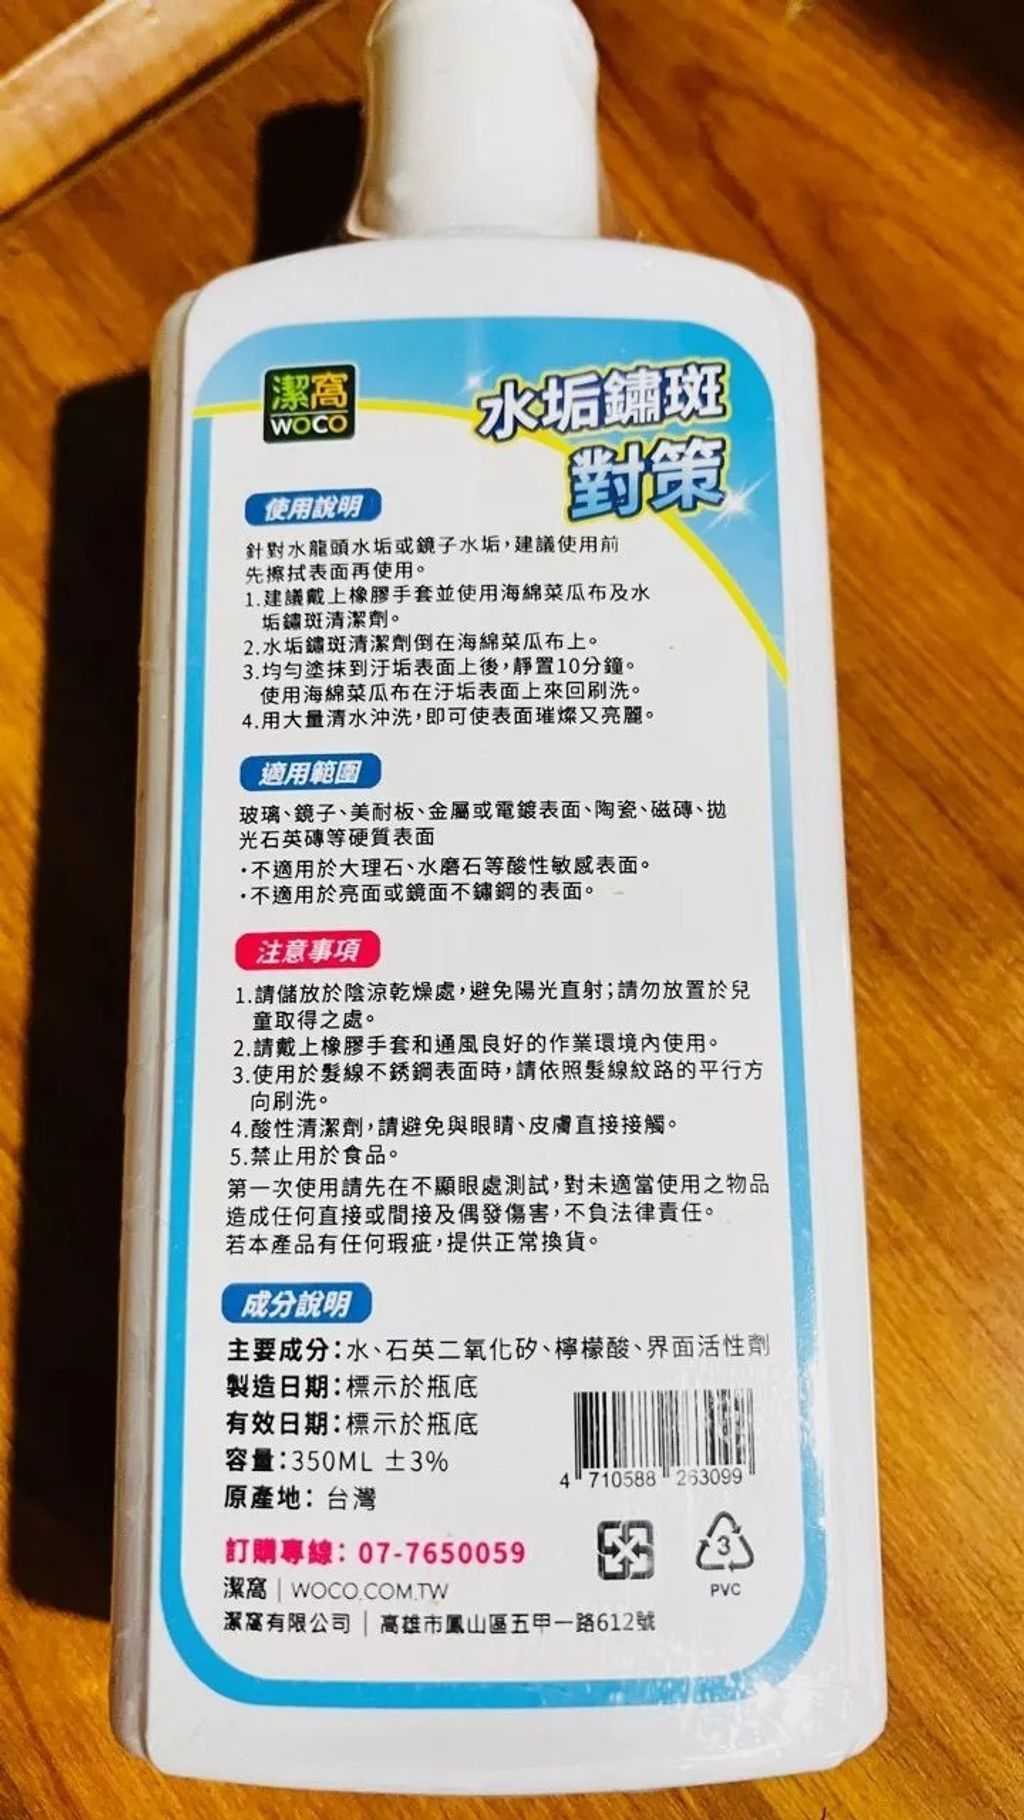 潔窩
WOCO
水垢鏽斑
對策
使用說明
針對水龍頭水垢或鏡子水垢,建議使用前
先擦拭表面再使用。
1.建議戴上橡膠手套並使用海綿菜瓜布及水
垢鏽斑清潔劑。
2.水垢鏽斑清潔劑倒在海綿菜瓜布上。
3.均勻塗抹到汙垢表面上後,靜置10分鐘。
使用海綿菜瓜布在汙垢表面上來回刷洗。
4.用大量清水沖洗,即可使表面璀燦又亮麗。
適用範圍
玻璃、鏡子、美耐板、金屬或電鍍表面、陶瓷、磁磚、拋
光石英磚等硬質表面
·不適用於大理石、水磨石等酸性敏感表面。
·不適用於亮面或鏡面不鏽鋼的表面。
注意事項
1.請儲放於陰涼乾燥處,避免陽光直射;請勿放置於兒
童取得之處。
2.請戴上橡膠手套和通風良好的作業環境內使用。
3.使用於髮線不銹鋼表面時,請依照髮線紋路的平行方
向刷洗。
4.酸性清潔劑,請避免與眼睛、皮膚直接接觸。
5.禁止用於食品。
第一次使用請先在不顯眼處測試,對未適當使用之物品
造成任何直接或間接及偶發傷害,不負法律責任。
若本產品有任何瑕疵,提供正常換貨。
成分說明
主要成分:水、石英二氧化矽、檸檬酸、界面活性劑
製造日期:標示於瓶底
有效日期:標示於瓶底
容量:350ML ±3%
原產地: 台灣
4 710588 263099
訂購專線: 07-7650059
3
PVC
潔窩 | WOCO.COM.TW
潔窩有限公司 | 高雄市鳳山區五甲一路612號